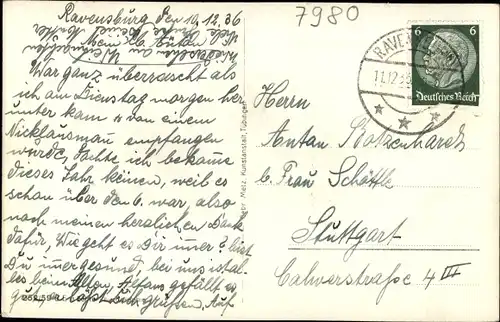 Ravensburg den 10.12.36
War ganz überrascht als
ich am Dienstag morgen her
unter kam u von einem
Nicklausman empfangen
wurde, dachte ich bekäme
dieses Jahr keinen, weil es
schon über den 6. war, also
nach meinen herzlichen Dank
dafür, Wie geht es Dir immer? bist
Du immer gesund, bei uns ist al-
les beim Alten, Alfons gefällt es
gut, er läßt Dich grüßen, Auf
7980
RAVENSBURG
11.12.36
6 6
Deutsches Reich
Herrn
Anton Botzenhardt
b. Frau Schöttle
Stuttgart
Calwerstraße 4 III
Gebr. Metz, Kunstanstalt, Tübingen